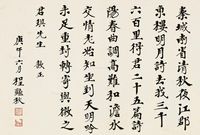 秦城南省清秋夜江郡
東樓明月時去我三千
六百里得君二十五篇詩
陽春曲調高難和澹水
交情老始知坐到天明吟
未足重封轉寄與微之
先生 教正
庚午六月